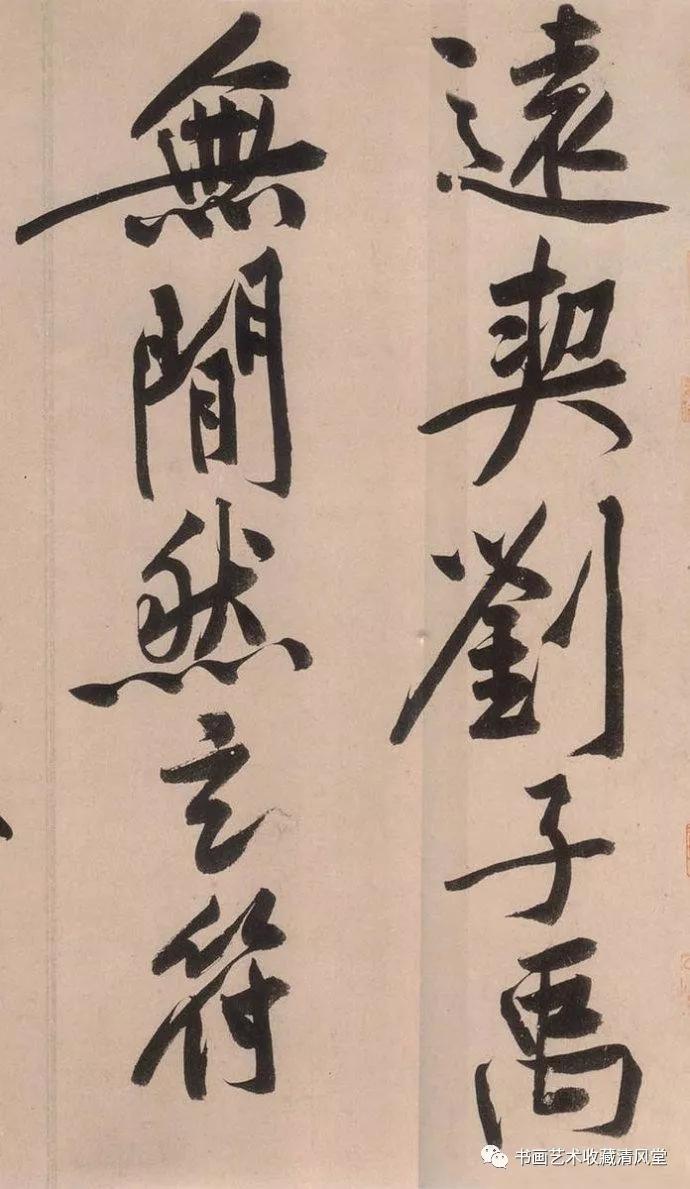 遠契劉子禹
無閒然玄符
书画艺术收藏清风堂